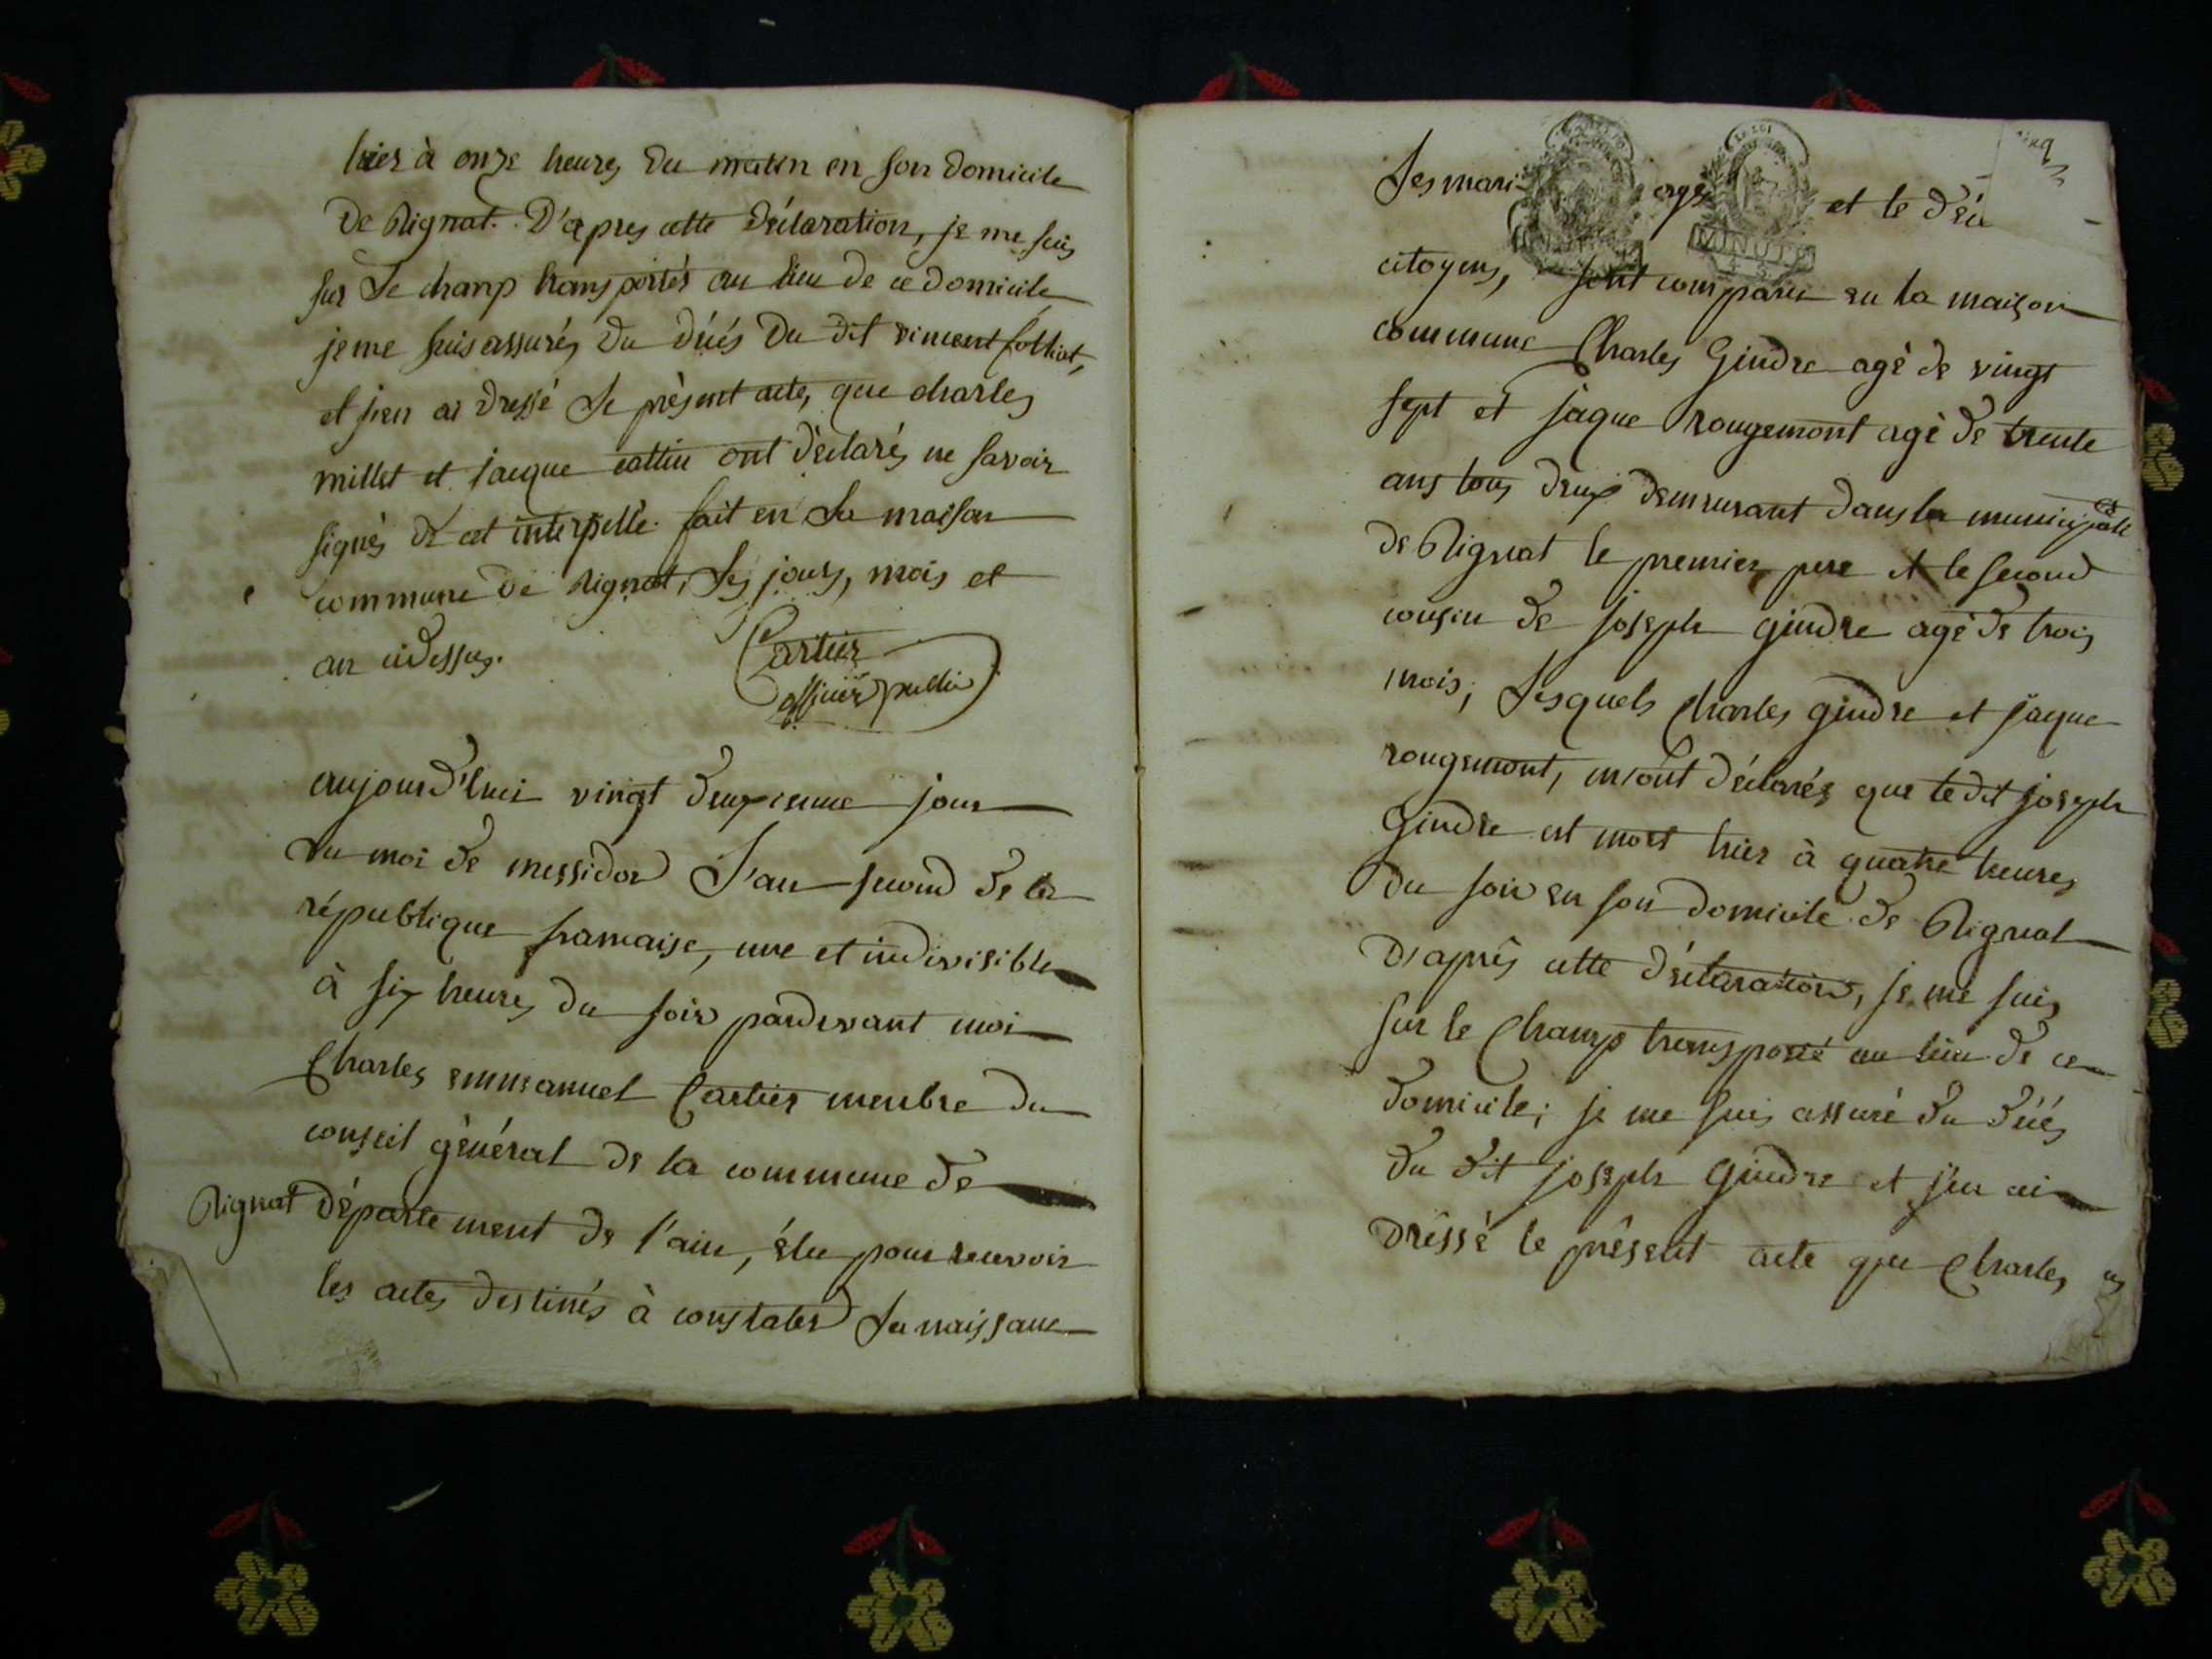 hier à onze heures du matin en son domicile
de Rignat. D'apres cette déclaration, je me suis
sur le champ transportés au lieu de ce domicile
je me suis assurés du décés du dit vincent folliat,
et j'en ai dressé le présent acte, que charles
millet et jacque cattin ont déclarés ne savoir
signés de cet interpellé. fait en la maison
commune de Rignat, les jours, mois et
an cidessus.
Cartier
officier public
aujourd'hui vingt deuxieme jour
du moi de messidor l'an second de la
république francaise, une et indivisible
à six heures du soir pardevant moi
Charles emmanuel Cartier menbre du
conseil général de la commune de
Rignat département de l'ain, élu pour recevoir
les actes destinés à constater la naissance
les mari ages et le déc
MINUTE
citoyens, sont comparu en la maison
commune Charles Gindre agé de vingt
sept et jaque rougemont agé de trente
ans tous deux demeurant dans la municipalité
de Rignat le premier pere et le second
cousin de joseph gindre agé de trois
mois, lesquels Charles gindre et jaque
rougemont, m'ont déclarés que le dit joseph
Gindre est mort hier à quatre heures
du soir en son domicile de Rignat
D'après cette déclaration, je me suis
sur le Champ transporté au lieu de ce
domicile; je me suis assuré du décés
du dit joseph Gindre et j'en ai
dréssé le présent acte que Charles